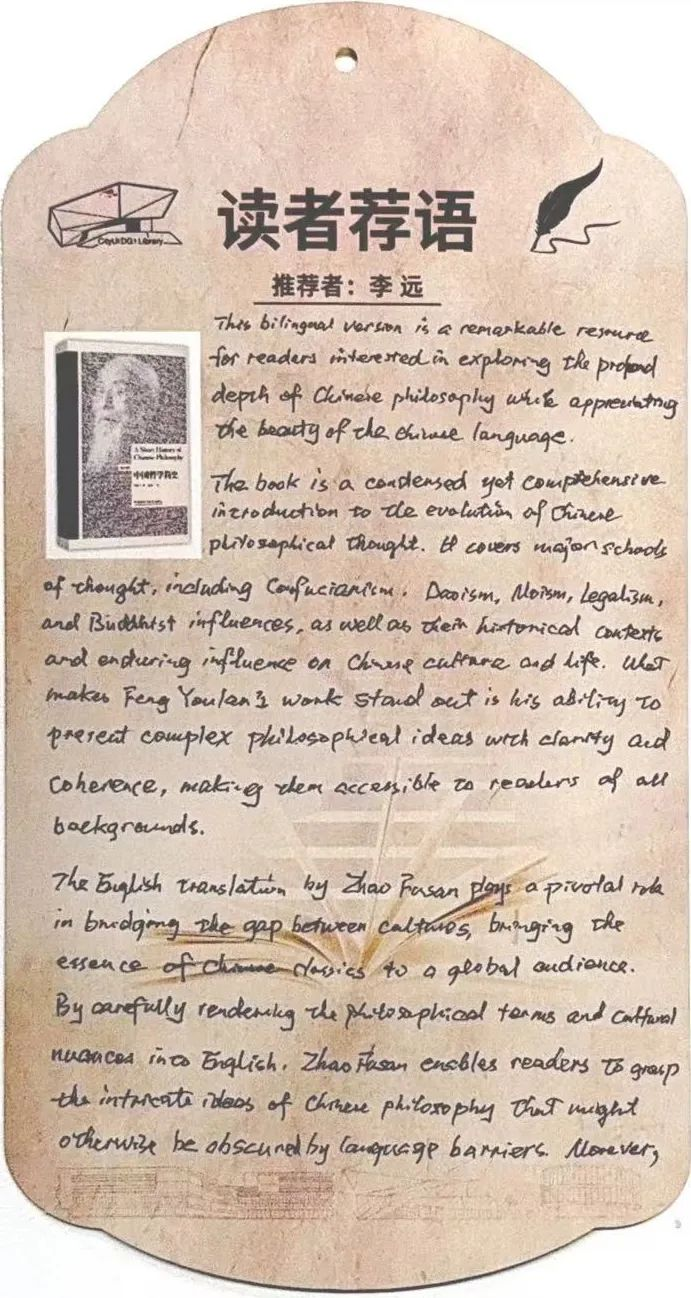 CityU(DG) Library
读者荐语
推荐者：李 远
This bilingual version is a remarkable resource
for readers interested in exploring the profound
depth of Chinese philosophy while appreciating
the beauty of the Chinese language.
A Short History of
Chinese Philosophy
中国哲学简史
The book is a condensed yet comprehensive
introduction to the evolution of Chinese
philosophical thought. It covers major schools
of thought, including Confucianism, Daoism, Moism, Legalism,
and Buddhist influences, as well as their historical contexts
and enduring influence on Chinese culture and life. What
makes Feng Youlan's work stand out is his ability to
present complex philosophical ideas with clarity and
coherence, making them accessible to readers of all
backgrounds.
The English translation by Zhao Fusan plays a pivotal role
in bridging the gap between cultures, bringing the
essence of Chinese classics to a global audience.
By carefully rendering the philosophical terms and cultural
nuances into English, Zhao Fusan enables readers to grasp
the intricate ideas of Chinese philosophy that might
otherwise be obscured by language barriers. Morever,